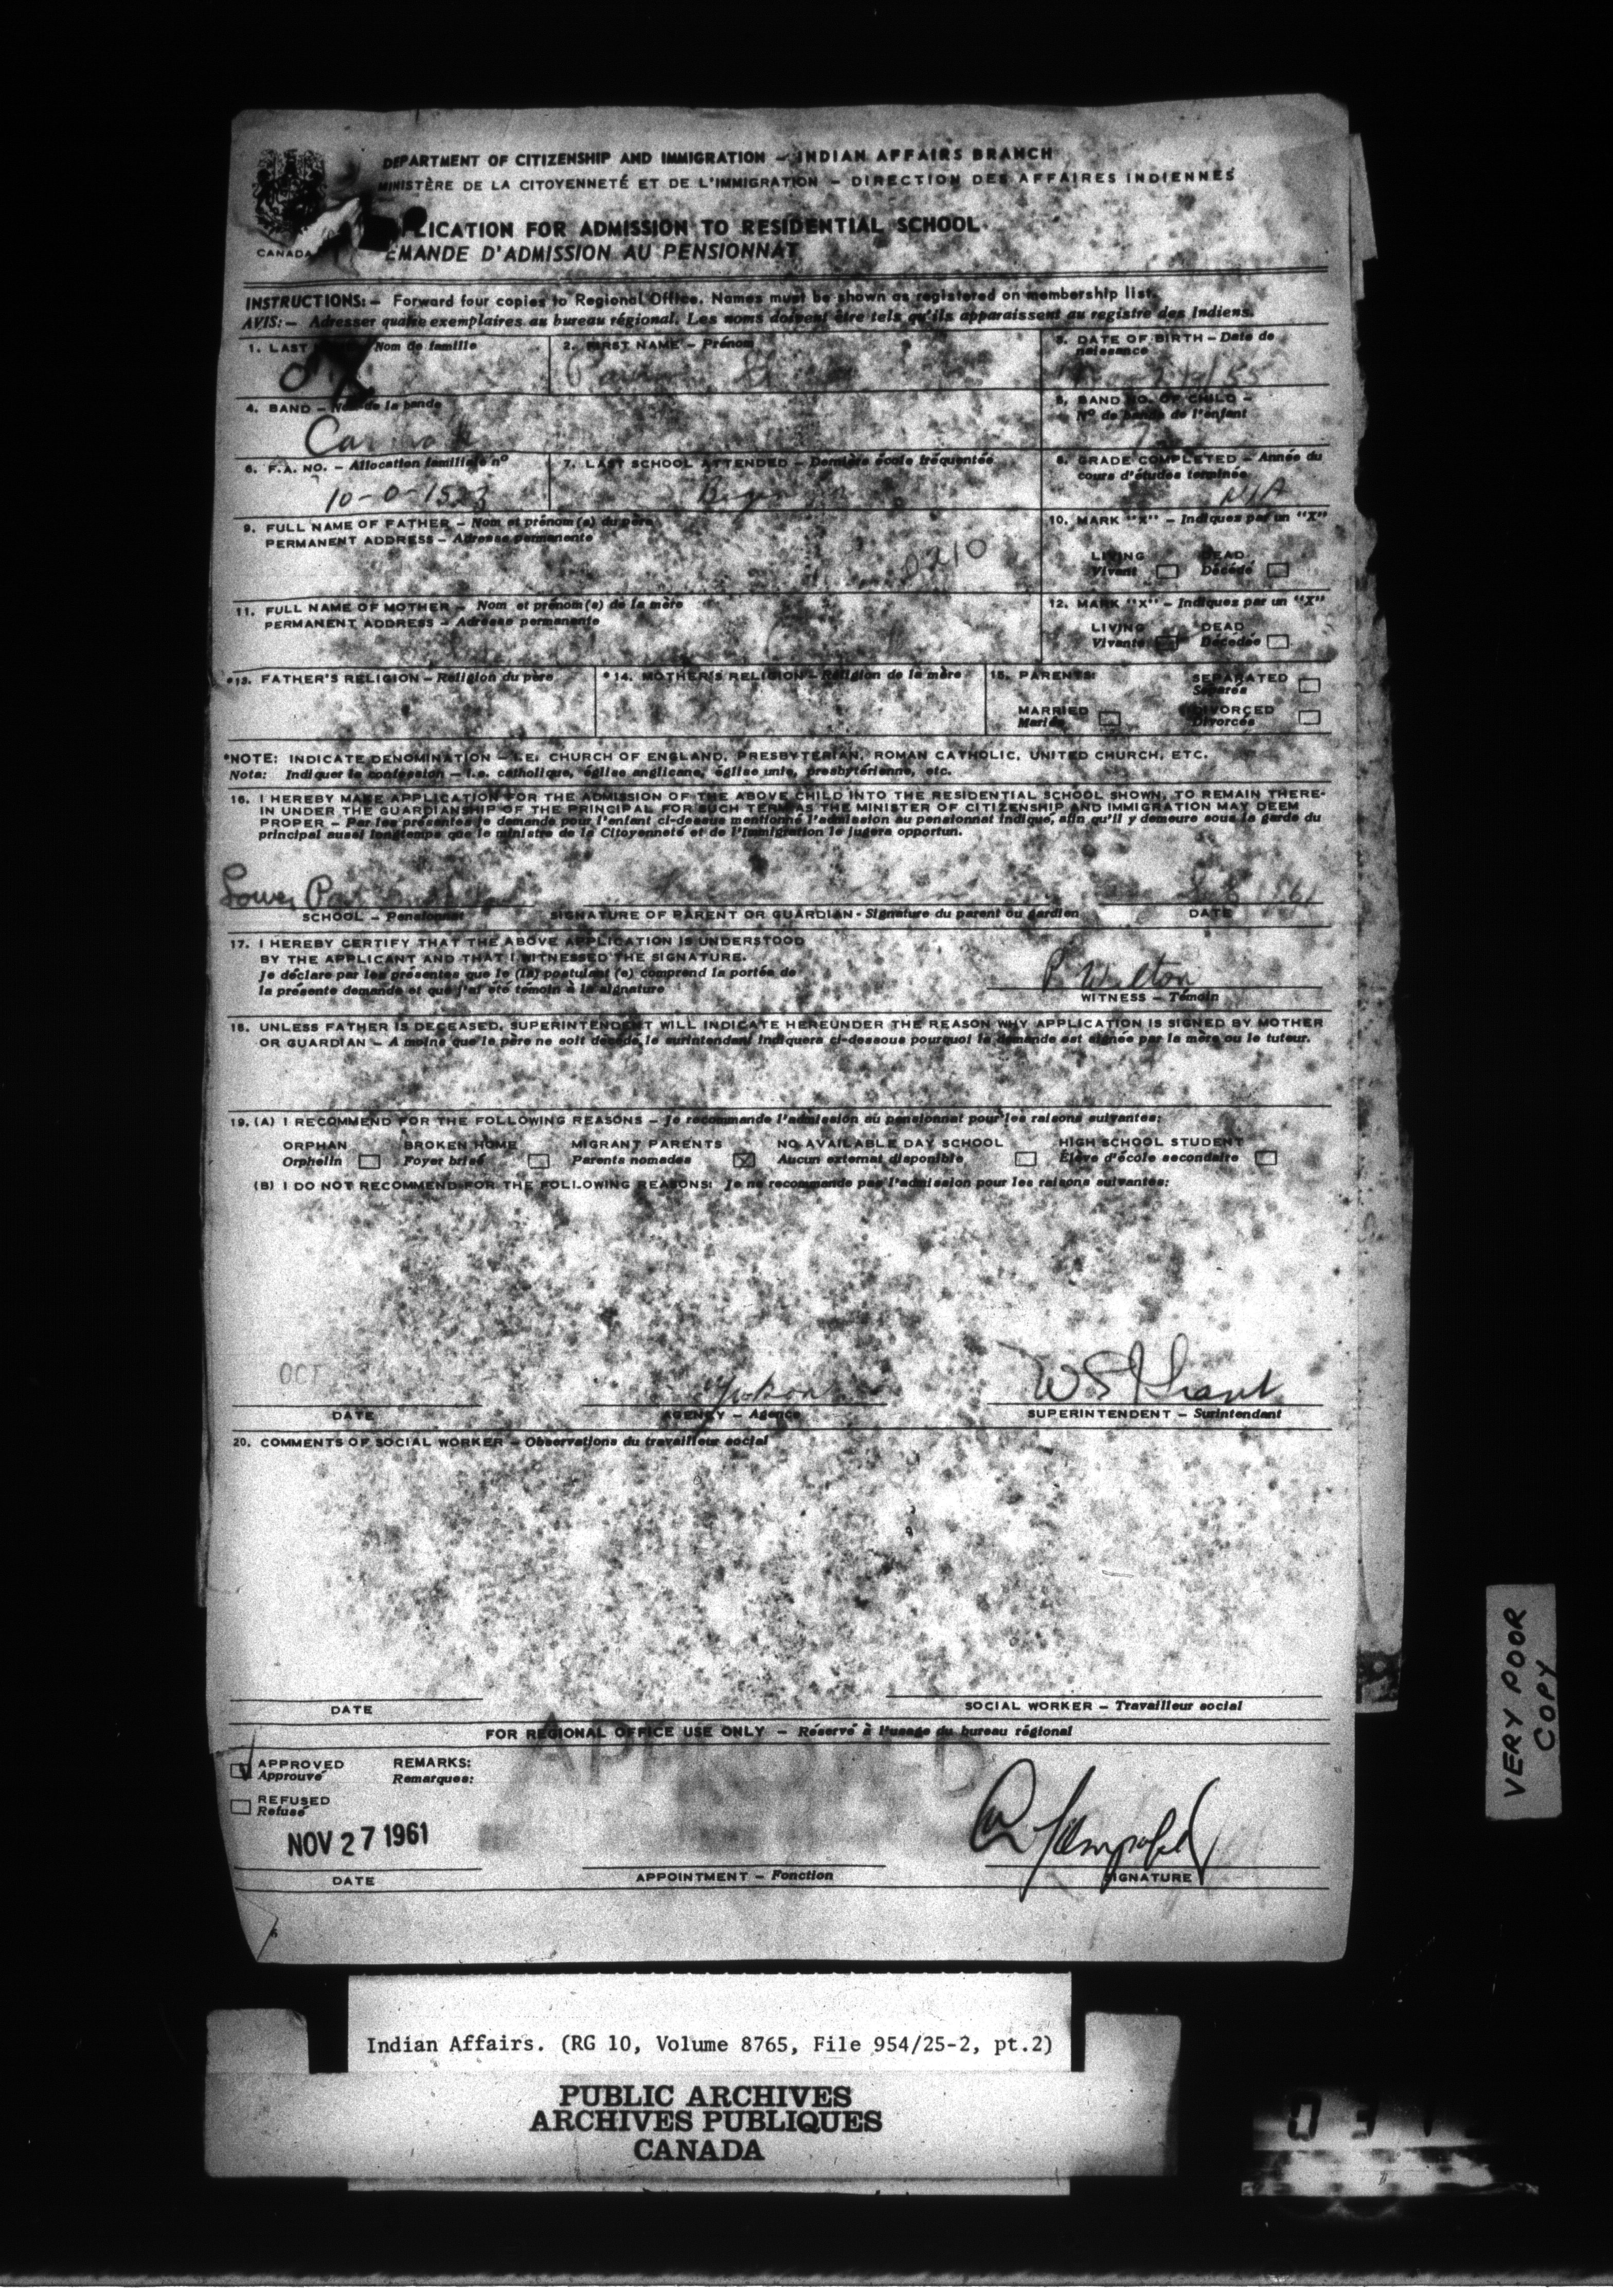 DEPARTMENT OF CITIZENSHIP AND IMMIGRATION – INDIAN AFFAIRS BRANCH
MINISTÈRE DE LA CITOYENNETÉ ET DE L'IMMIGRATION – DIRECTION DES AFFAIRES INDIENNES
PLICATION FOR ADMISSION TO RESIDENTIAL SCHOOL
EMANDE D'ADMISSION AU PENSIONNAT
CANADA
INSTRUCTIONS: – Forward four copies to Regional Office. Names must be shown as registered on membership list.
AVIS: – Adresser quatre exemplaires au bureau régional. Les noms doivent être tels qu'ils apparaissent au registre des Indiens.
1. LAST Nom de famille 2. FIRST NAME – Prénom 3. DATE OF BIRTH – Date de naissance
4. BAND – Nom de la bande 5. BAND NO. OF CHILD – Nº de bande de l'enfant
6. F.A. NO. – Allocation familiale nº 7. LAST SCHOOL ATTENDED – Dernière école fréquentée 8. GRADE COMPLETED – Année du cours d'études terminée
10-0-1523
9. FULL NAME OF FATHER – Nom et prénom(s) du père 10. MARK "X" – Indiquez par un "X"
PERMANENT ADDRESS – Adresse permanente
0210
LIVING DEAD
Vivant Décédé
11. FULL NAME OF MOTHER – Nom et prénom(s) de la mère 12. MARK "X" – Indiquez par un "X"
PERMANENT ADDRESS – Adresse permanente
LIVING DEAD
Vivante Décédée
*13. FATHER'S RELIGION – Religion du père *14. MOTHER'S RELIGION – Religion de la mère 15. PARENTS:
SEPARATED
Séparés
MARRIED DIVORCED
Mariés Divorcés
*NOTE: INDICATE DENOMINATION – I.E. CHURCH OF ENGLAND, PRESBYTERIAN, ROMAN CATHOLIC, UNITED CHURCH, ETC.
Nota: Indiquer la confession – i.e. catholique, église anglicane, église unie, presbytérienne, etc.
16. I HEREBY MAKE APPLICATION FOR THE ADMISSION OF THE ABOVE CHILD INTO THE RESIDENTIAL SCHOOL SHOWN, TO REMAIN THERE-
IN UNDER THE GUARDIANSHIP OF THE PRINCIPAL FOR SUCH TERM AS THE MINISTER OF CITIZENSHIP AND IMMIGRATION MAY DEEM
PROPER – Par les présentes je demande pour l'enfant ci-dessus mentionné l'admission au pensionnat indiqué, afin qu'il y demeure sous la garde du
principal aussi longtemps que le ministre de la Citoyenneté et de l'Immigration le jugera opportun.
Lower
SCHOOL – Pensionnat SIGNATURE OF PARENT OR GUARDIAN - Signature du parent ou gardien DATE
17. I HEREBY CERTIFY THAT THE ABOVE APPLICATION IS UNDERSTOOD
BY THE APPLICANT AND THAT I WITNESSED THE SIGNATURE.
Je déclare par les présentes que le (la) postulant (e) comprend la portée de
la présente demande et que j'ai été témoin à la signature
P. Walton
WITNESS – Témoin
18. UNLESS FATHER IS DECEASED, SUPERINTENDENT WILL INDICATE HEREUNDER THE REASON WHY APPLICATION IS SIGNED BY MOTHER
OR GUARDIAN – A moins que le père ne soit décédé, le surintendant indiquera ci-dessous pourquoi la demande est signée par la mère ou le tuteur.
19. (A) I RECOMMEND FOR THE FOLLOWING REASONS – Je recommande l'admission au pensionnat pour les raisons suivantes:
ORPHAN BROKEN HOME MIGRANT PARENTS NO AVAILABLE DAY SCHOOL HIGH SCHOOL STUDENT
Orphelin Foyer brisé Parents nomades Aucun externat disponible Élève d'école secondaire
(B) I DO NOT RECOMMEND FOR THE FOLLOWING REASONS: Je ne recommande pas l'admission pour les raisons suivantes:
OCT Yukon
DATE AGENCY – Agence SUPERINTENDENT – Surintendant
20. COMMENTS OF SOCIAL WORKER – Observations du travailleur social
DATE SOCIAL WORKER – Travailleur social
FOR REGIONAL OFFICE USE ONLY – Réservé à l'usage du bureau régional
APPROVED REMARKS:
Approuvé Remarques:
REFUSED
Refusé
NOV 27 1961
DATE APPOINTMENT – Fonction SIGNATURE
VERY POOR
COPY
Indian Affairs. (RG 10, Volume 8765, File 954/25-2, pt.2)
PUBLIC ARCHIVES
ARCHIVES PUBLIQUES
CANADA